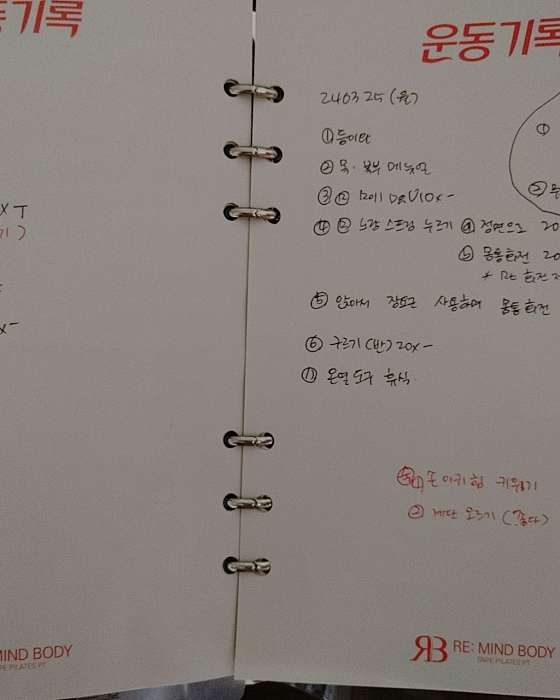 동기록
x T
기)
x-
MIND BODY
SNPE PILATES PT
운동기록
240325 (월)
① 등이완
② 목·복부 매뉴얼
③ ⑫ 10x-
④ ⑫ 노랑 스프링 누르기 ⓐ 정면으로 20
ⓑ 몸통회전 20
* 회전
⑤ 앉아서 장요근 사용하며 몸통회전
⑥ 구르기(반) 20x-
⑦ 온열도구 휴식.
① 손아귀힘 키우기
② 계단 오르기 (좋다)
RB RE: MIND BODY
SNPE PILATES PT